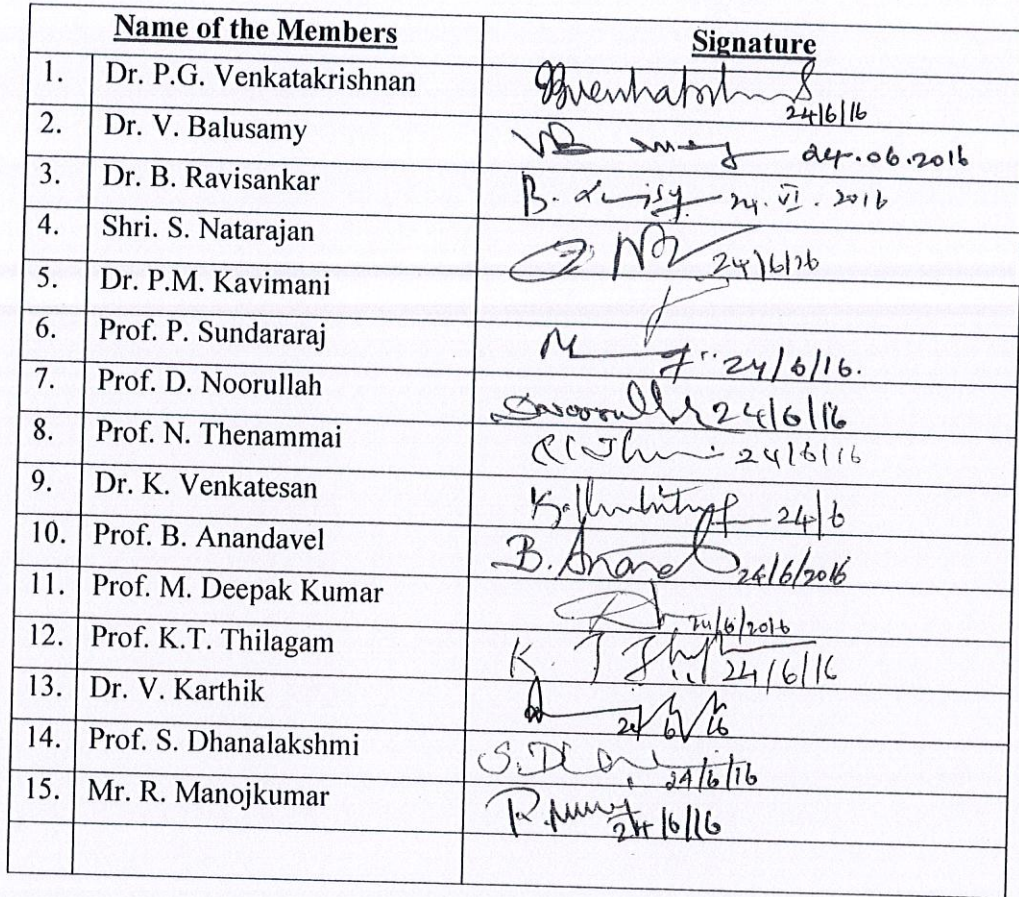 Name of the Members Signature
1. Dr. P.G. Venkatakrishnan
24/6/16
2. Dr. V. Balusamy 24.06.2016
3. Dr. B. Ravisankar B. 24.VI.2016
4. Shri. S. Natarajan 24/6/16
5. Dr. P.M. Kavimani
6. Prof. P. Sundararaj 24/6/16.
7. Prof. D. Noorullah Dnoorullah 24/6/16
8. Prof. N. Thenammai 24/6/16
9. Dr. K. Venkatesan 24/6
10. Prof. B. Anandavel B. Anand 24/6/2016
11. Prof. M. Deepak Kumar 24/6/2016
12. Prof. K.T. Thilagam K. T 24/6/16
13. Dr. V. Karthik 24/6/16
14. Prof. S. Dhanalakshmi 24/6/16
15. Mr. R. Manojkumar 24/6/16